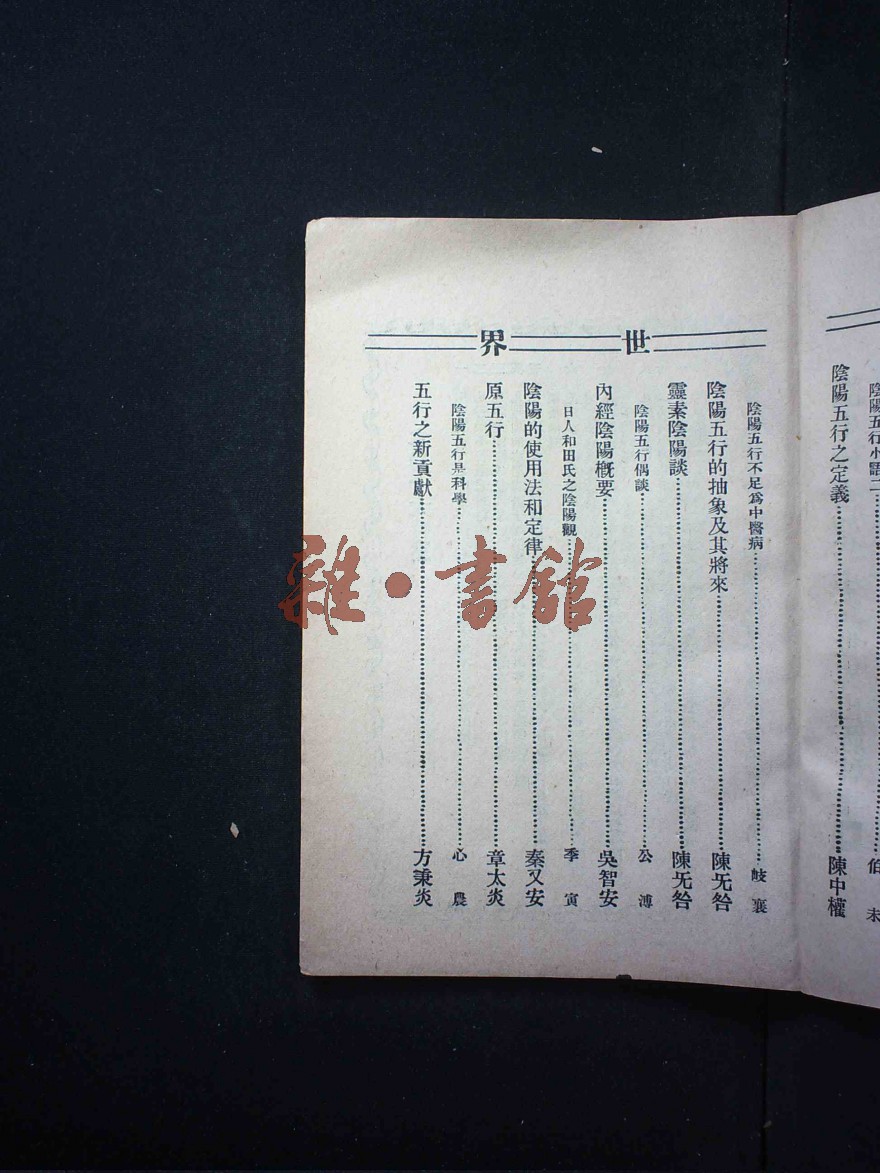 陰陽五行之定義……陳中權
世界
陰陽五行不足為中醫病……岐襄
陰陽五行的抽象及其將來……陳旡咎
靈素陰陽談……陳旡咎
陰陽五行偶談……公溥
內經陰陽概要……吳智安
日人和田氏之陰陽觀……季寅
陰陽的使用法和定律……秦又安
原五行……章太炎
陰陽五行是科學……心農
五行之新貢獻……方秉炎
雜·書館